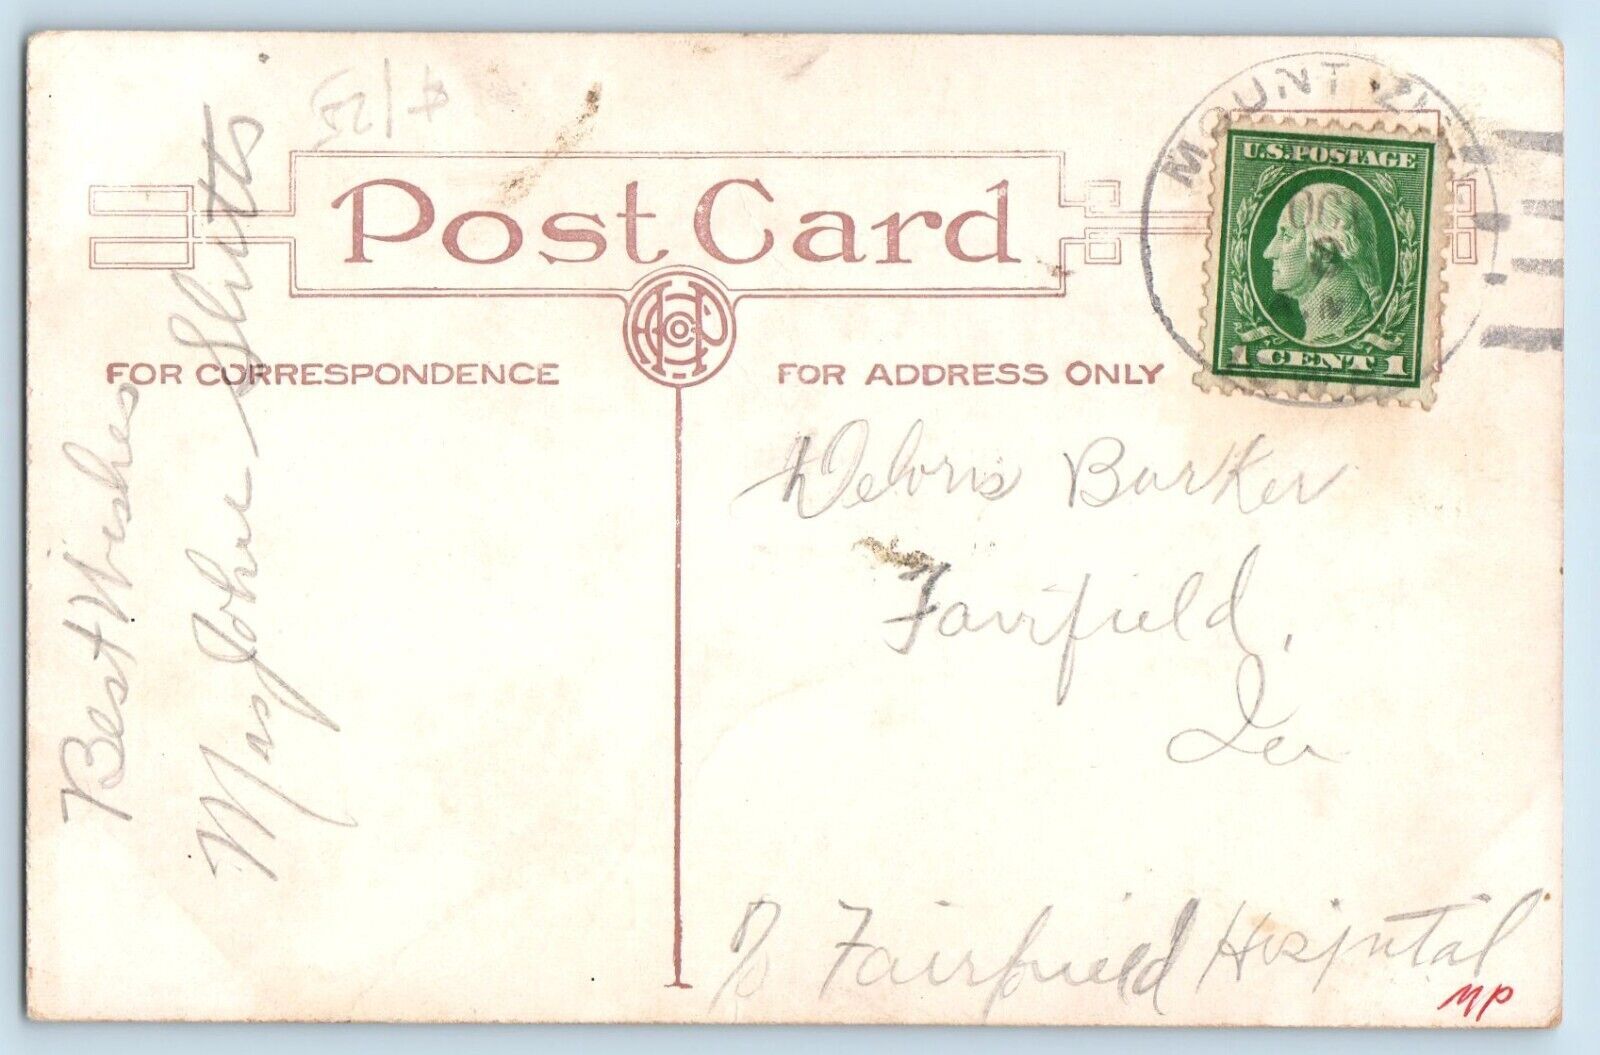 Post Card
FOR CORRESPONDENCE
FOR ADDRESS ONLY
MOUNT
OCT
U.S. POSTAGE
1 CENT 1
Best Wishes
Mrs John Shutts
Deloris Barker
Fairfield,
Ia
% Fairfield Hospital
MP